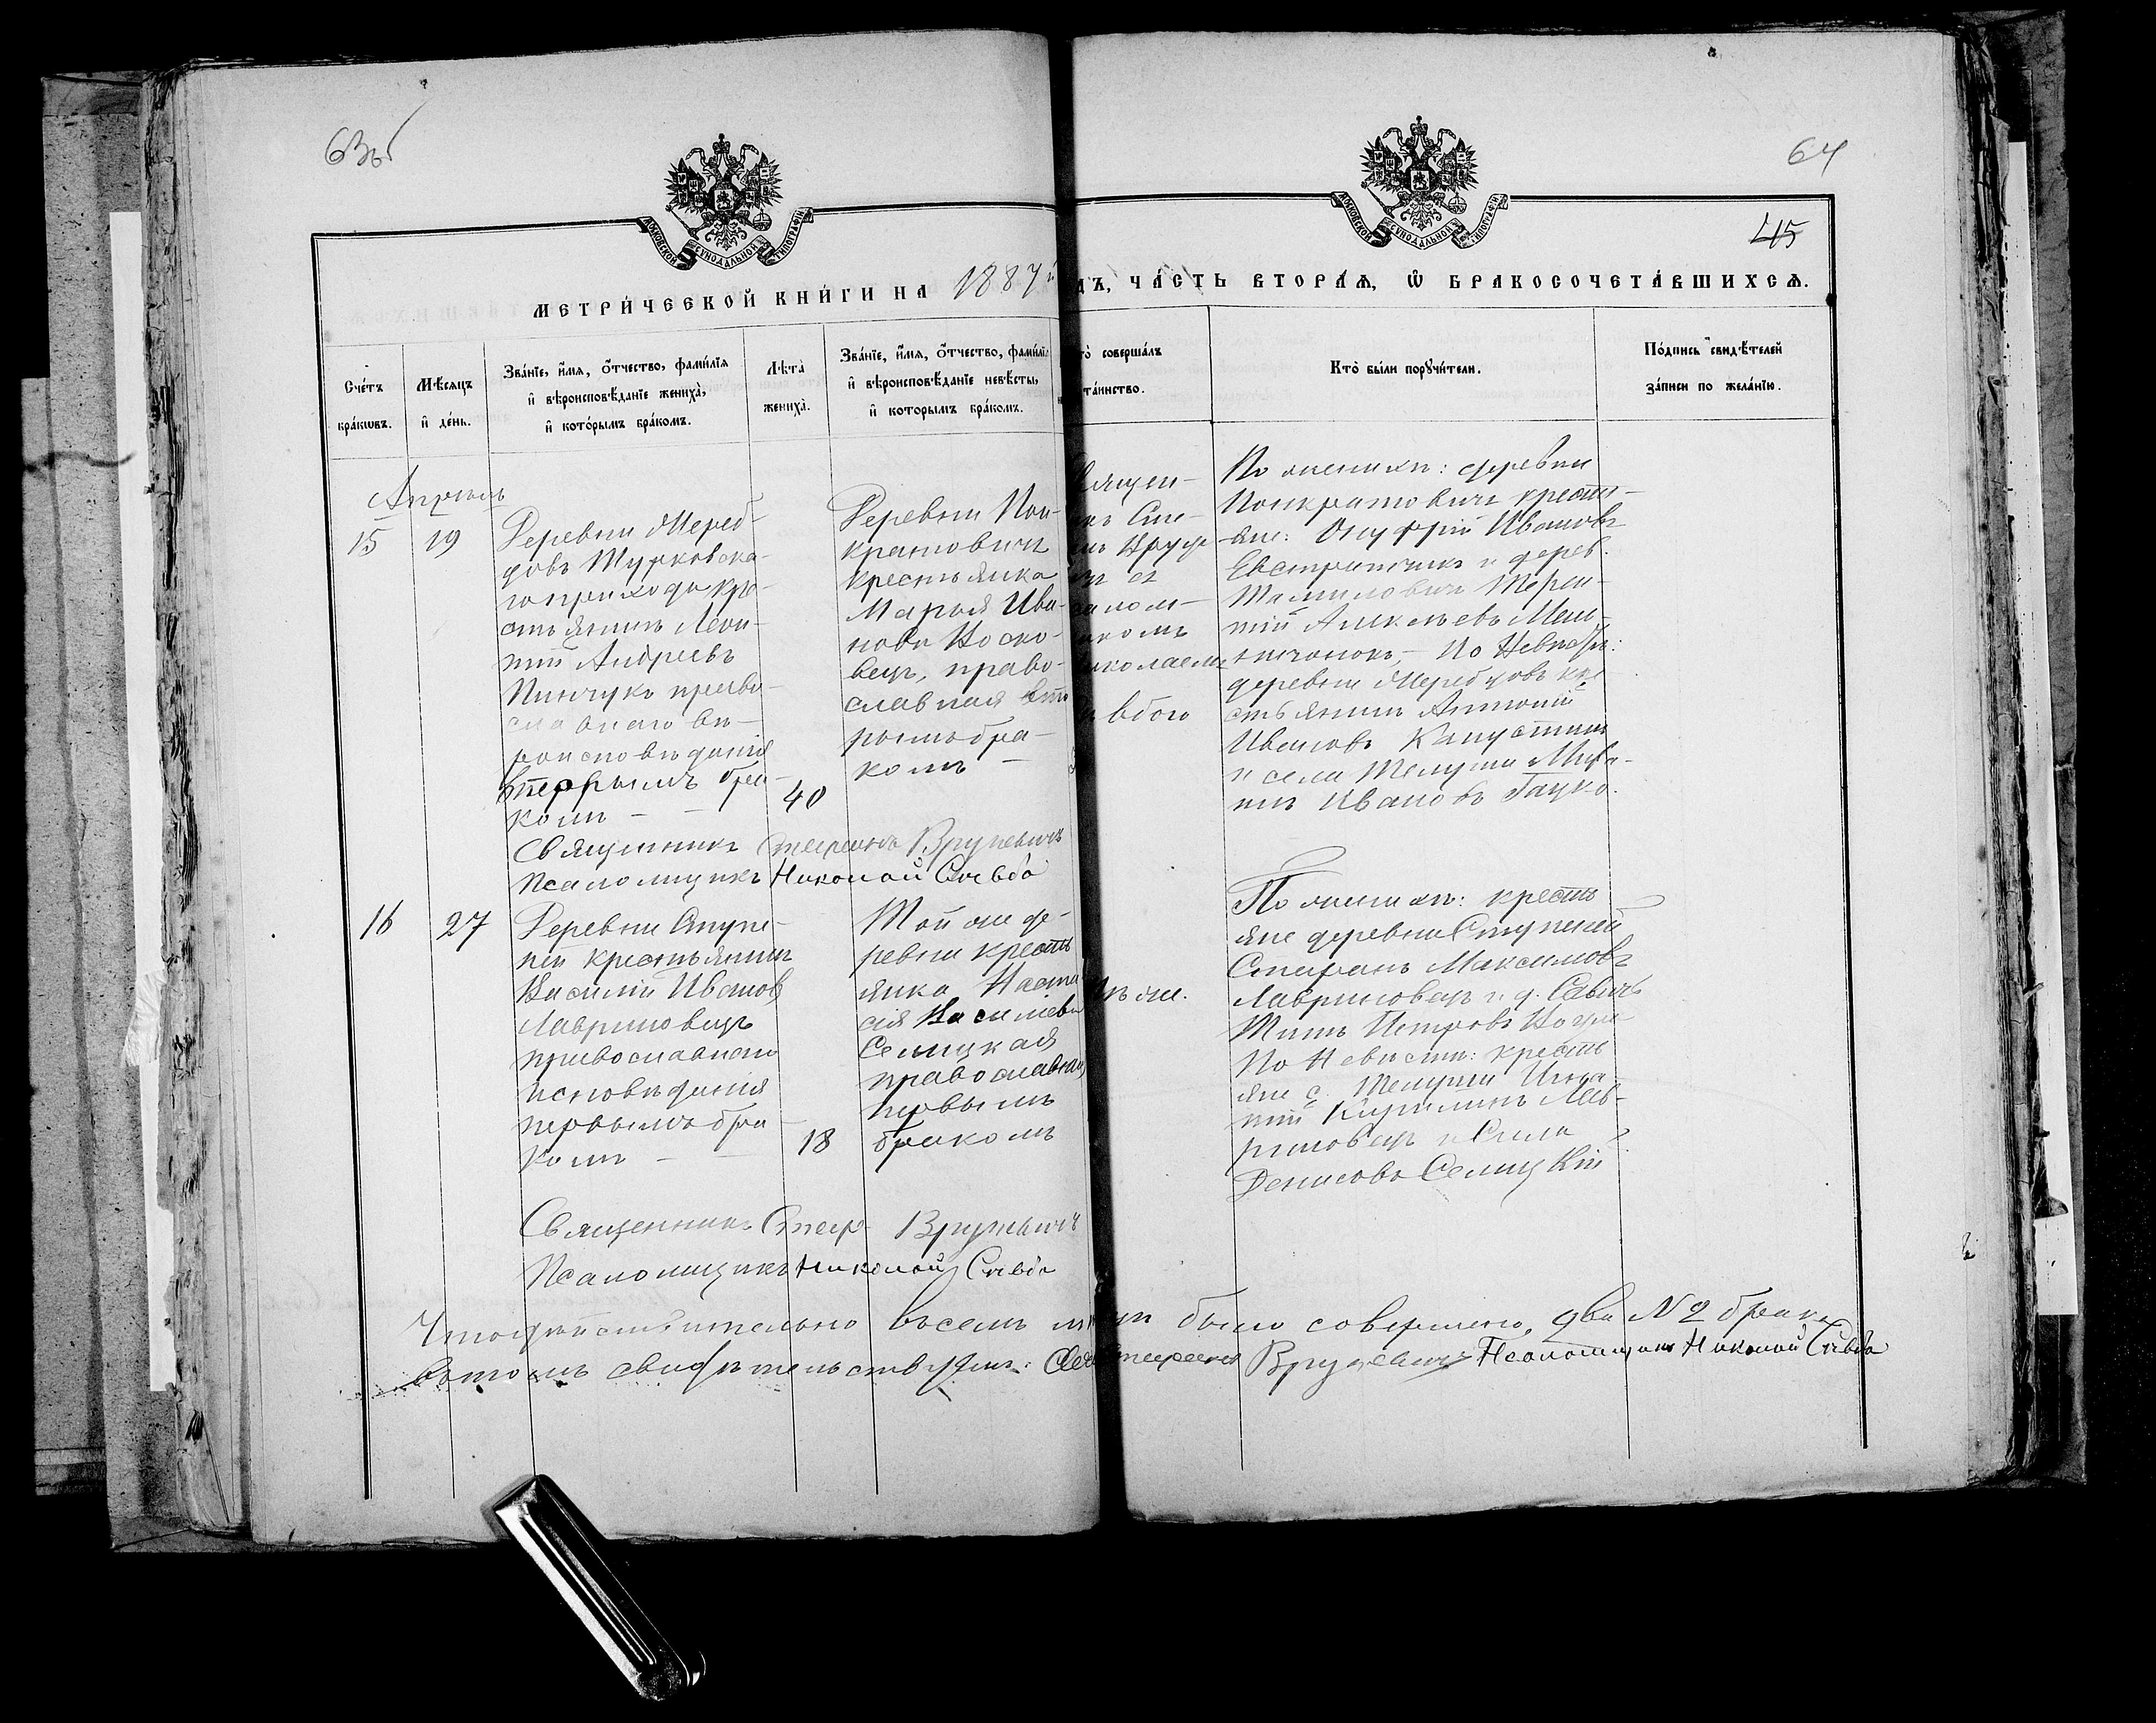 63об
64
45
МОСКОВСКОЙ СУНОДАЛЬНОЙ ТИПОГРАФІИ
МОСКОВСКОЙ СУНОДАЛЬНОЙ ТИПОГРАФІИ
МЕТРИ́ЧЕСКОЙ КНИ́ГИ НА 1887й
ДЪ, ЧА́СТЬ ВТОРА́Ѧ, Ѿ БРАКОСОЧЕТА́ВШИХСѦ.
Сче́тъ
бра́кѡвъ.
Мѣ́сяцъ
и҆ де́нь.
Зва́нїе, и҆́мя, ѻ҆́тчество, фами́лїя
и҆ вѣроисповѣ́данїе жениха̀,
и҆ кото́рымъ бра́комъ.
Лѣ́та
жениха̀.
Зва́нїе, и҆́мя, ѻ҆́тчество, фами́лї
и҆ вѣроисповѣ́данїе невѣ́сты,
и҆ которымъ бра́комъ.
то̀ соверша́лъ
та́инство.
Кто̀ бы́ли порꙋчи́тели.
По́дпись свидѣ́телей
за́писи по жела́нїю.
Апрѣль
15
19
Деревни Жереб-
цовъ Турковска-
го прихода кре-
стьянинъ Леон-
тій Андреевъ
Пинчукъ право-
славнаго вѣ-
роисповѣданія
первымъ бра-
комъ —
40
Деревни Пон-
кратовичъ
крестьянка
Марья Ива-
нова Коско-
вецъ, право-
славная вто
рымъ бра-
комъ —
вящен-
Сте-
Вруце
съ
алом-
комъ
иколаемъ
вбою
По женихѣ: деревни
Понкратовичъ кресть-
яне: Онуфрій Ивановъ
Евстратчикъ и дерев.
Терен-
тій Алексѣевъ Мель-
ниченокъ, — По Невѣстѣ:
деревни Жеребцовъ кре
стьянинъ Антоній
Ивановъ Капустинъ
и села Телуши Миха-
илъ Ивановъ Гацко.
Священникъ Стефанъ Вруцевичъ
Псаломщикъ Николай Сивбо
16
27
Деревни Ступе-
ней крестьянинъ
Василій Ивановъ
Лавриновецъ
православнаго
исповѣданія
первымъ бра-
комъ —
18
Той же де-
ревни кресть
янка Наста
сія Василіева
Селицкая
православная
первымъ
бракомъ
же.
По женихѣ: кресть
яне деревни Ступеней
Стефанъ Максимовъ
Лавриновецъ и д. Савичъ
Титъ Петровъ
По Невѣстѣ: кресть
яне с. Телуши Игна-
тій Кириллинъ Лав-
риновецъ и Сила
Денисовъ Селицкій
Священникъ Стеф. Вруцевичъ
Псаломщикъ Николай Сивбо
Что дѣйствительно въ семъ было совершено два № 2 брака
въ томъ свидѣтельствуемъ: Стефанъ Вруцевичъ Псаломщикъ Николай Сивбо